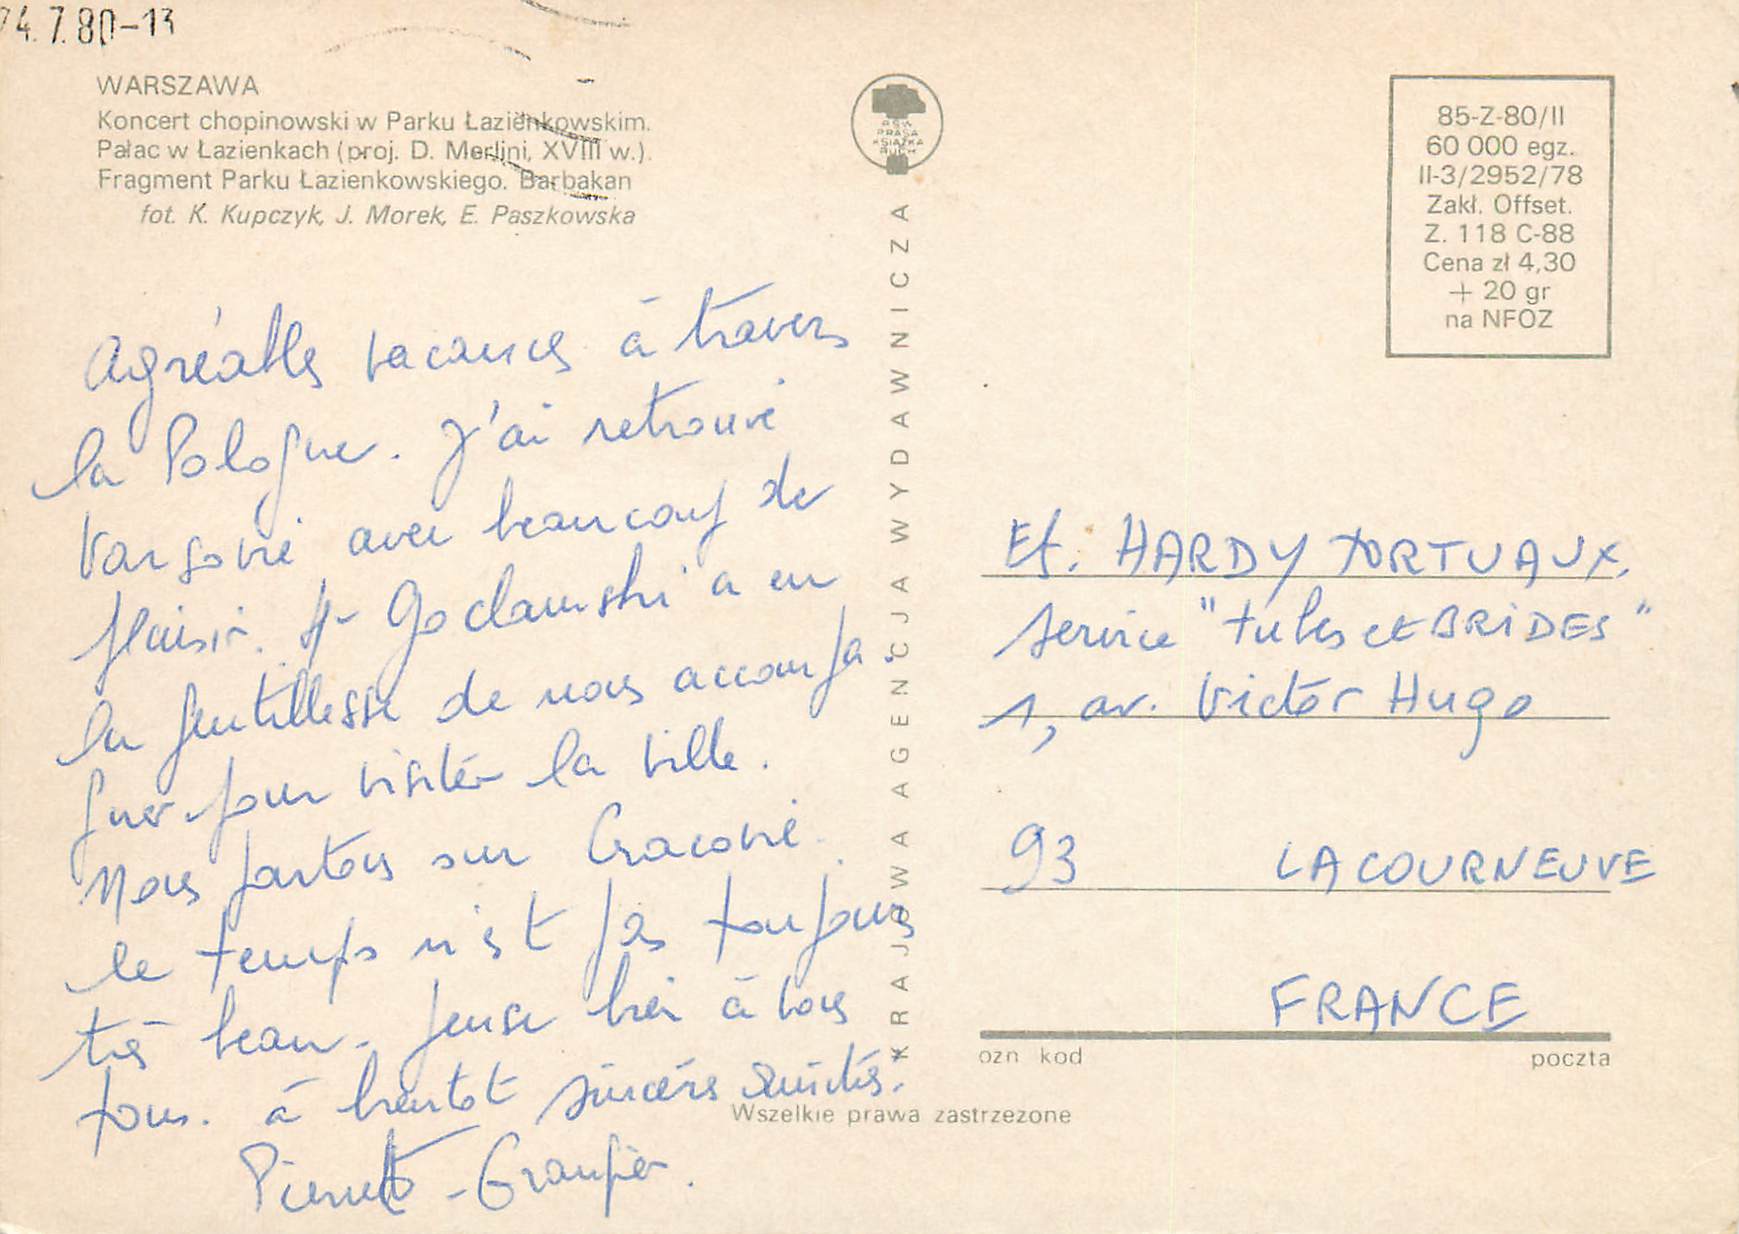 24.7.80-13
WARSZAWA
Koncert chopinowski w Parku Łazienkowskim.
Pałac w Łazienkach (proj. D. Merlini, XVIII w.).
Fragment Parku Łazienkowskiego. Barbakan
fot. K. Kupczyk, J. Morek, E. Paszkowska
RSW
PRASA
KSIĄŻKA
RUCH
85-Z-80/II
60 000 egz.
II-3/2952/78
Zakł. Offset.
Z. 118 C-88
Cena zł 4,30
+ 20 gr
na NFOZ
KRAJOWA AGENCJA WYDAWNICZA
Agréables vacances à travers
la Pologne. J'ai retrouvé
Varsovie avec beaucoup de
plaisir. Goclawski a eu
la gentillesse de nous accompa
gner pour visiter la ville.
Nous partons sur Cracovie.
le temps n'est pas toujours
très beau. pense bien à vous
tous. à bientôt sincères amitiés.
Pierrette
Et. HARDY TORTUAUX,
service "tubes et BRIDES"
1, av. Victor Hugo
93 LA COURNEUVE
FRANCE
ozn kod poczta
Wszelkie prawa zastrzeżone